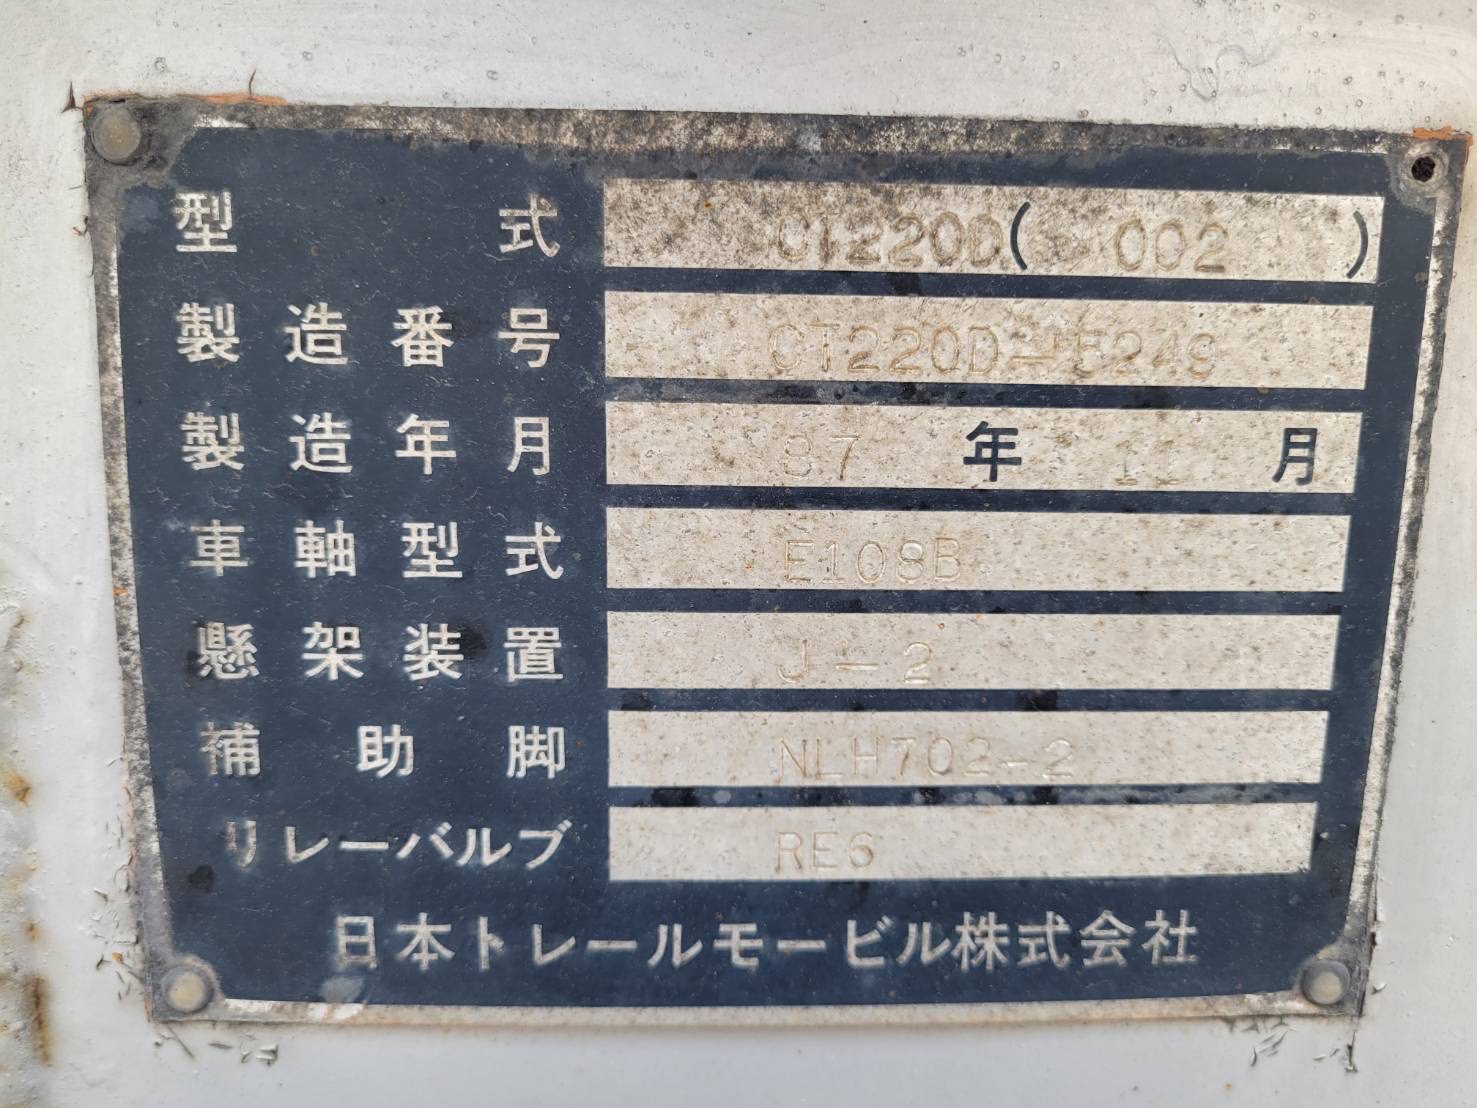 型式 CT220D( 002 )
製造番号 CT220D-5249
製造年月 87年 11月
車軸型式 E108B
懸架装置 J-2
補助脚 NLH702-2
リレーバルブ RE6
日本トレールモービル株式会社